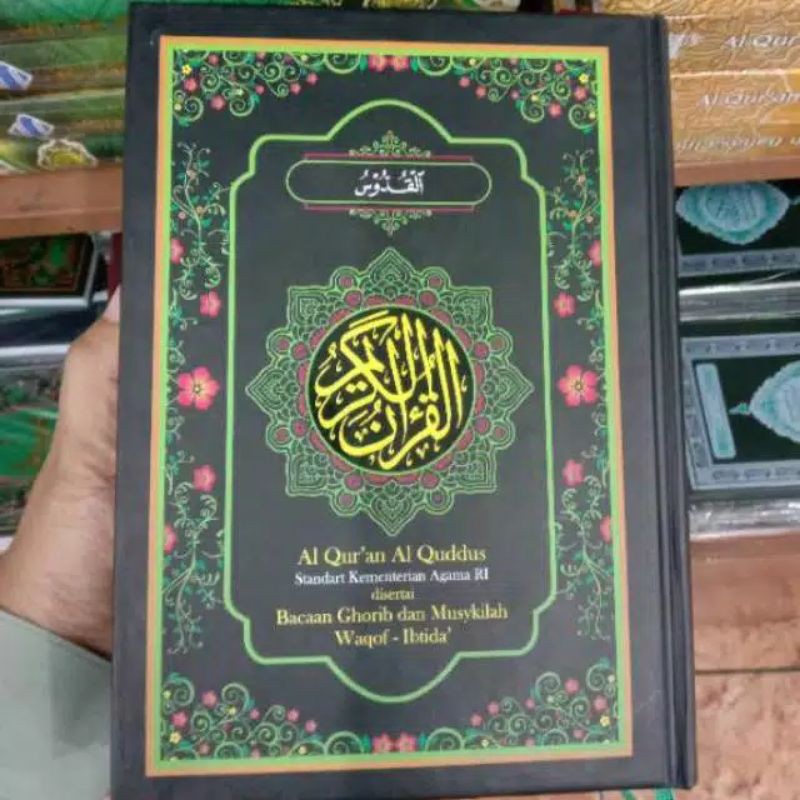 اَلْقُدُّوْسُ
القرآن الكريم
Al Qur'an Al Quddus
Standart Kementerian Agama RI
disertai
Bacaan Ghorib dan Musykilah
Waqof - Ibtida'
Al Qur'
Al Qur'an